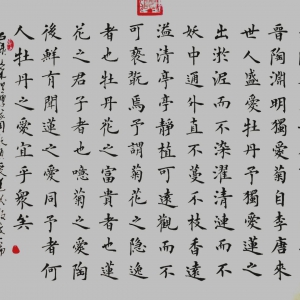 晉陶淵明獨愛菊自李唐來
世人盛愛牡丹予獨愛蓮之
出淤泥而不染濯清漣而不
妖中通外直不蔓不枝香遠
溢清亭亭靜植可遠觀而不
可褻翫焉予謂菊花之隱逸
者也牡丹花之富貴者也蓮
花之君子者也噫菊之愛陶
後鮮有聞蓮之愛同予者何
人牡丹之愛宜乎衆矣